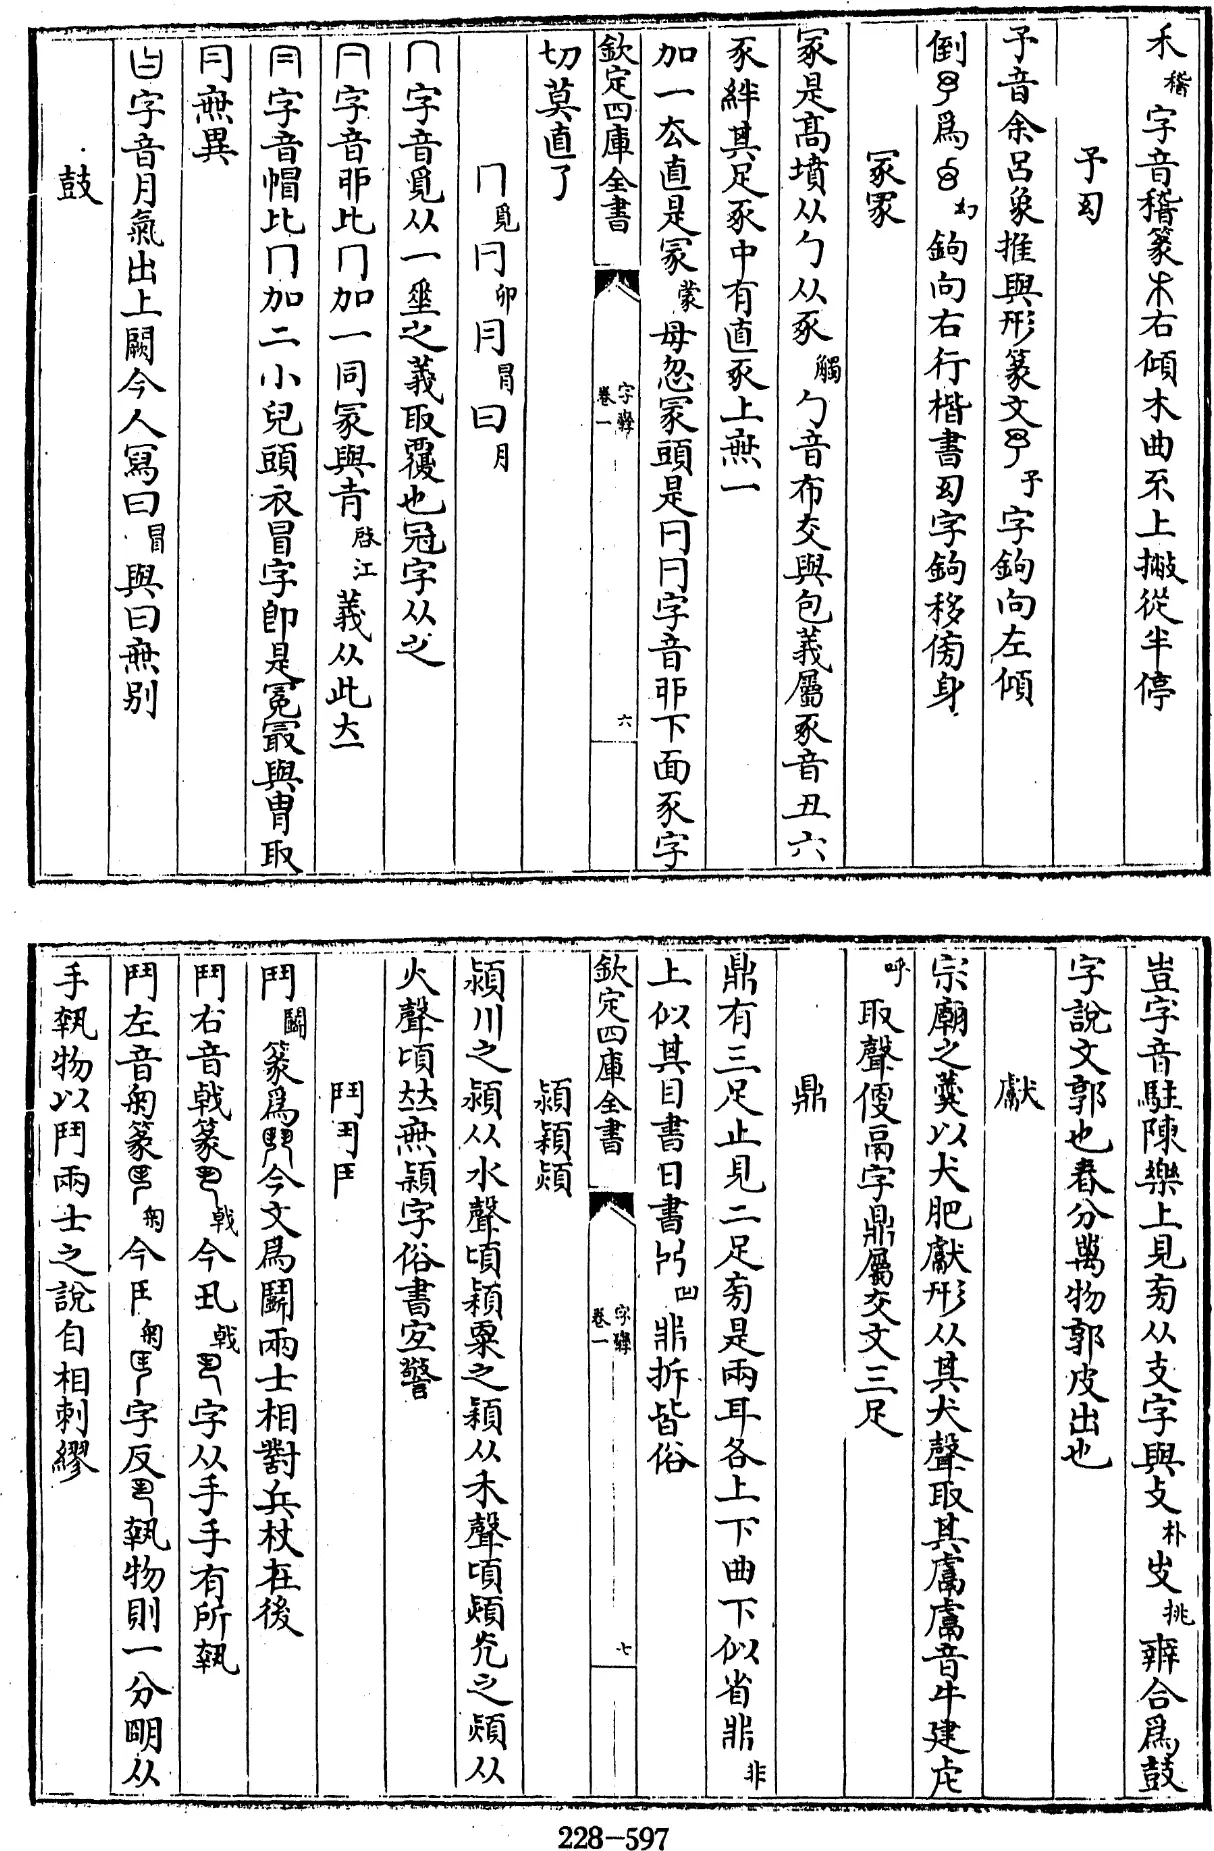 禾稽字音稽篆右傾木曲䄪上撇從半停
予㓜
予音余呂象推與形篆文予字鉤向左傾
倒爲幻鉤向右行楷書字鉤移傍身
冢冡
冢是高墳从勹从豖觸勹音布交與包義屬豖音丑六
豕絆其足豖中有直豕上無一
加一夲直是冡蒙毋忽冡頭是冃冃字音卯下面豕字
欽定四庫全書 字孿卷一 六
切莫直了
冖覓冃卯冐曰月
冖字音覓从一垂之義取覆也冠字从之
字音卯比冖加一同冡與青啟江義从此
冃字音帽比冖加二小兒頭衣冒字即是冕冣與冑取
冃無異
曰字音月氣出上闕今人寫曰冒與曰無別
鼓
壴字音駐陳樂上見旁从支字與攴朴𠬢挑辨合爲鼓
字說文郭也春分萬物郭皮出也
獻
宗廟之羹以犬肥獻形从其犬聲取其鬳鬳音牛建虍
呼取聲傻鬲字鼎屬交文三足
鼎
鼎有三足止見二足旁是兩耳各上下曲下似省鼎非
上似其目書日書凹鼎拆皆俗
欽定四庫全書 字孿卷一 七
潁穎熲
潁川之潁从水聲頃穎粟之穎从禾聲頃熲光之熲从
火聲頃𠀤無頴字俗書宜警
鬥
鬥鬬篆爲今文爲鬭兩士相對兵杖在後
鬥右音戟篆戟今丮戟字从手手有所執
鬥左音掬篆掬今掬字反執物則一分明从
手執物以鬥兩士之說自相刺繆
228-597